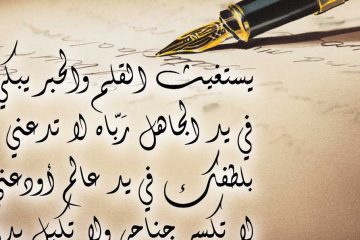 يستغيث القلم والحبر يبكي
في يد الجاهل رَبّاه لا تدعني
بلطفك في يد عالم أودعني
لا تكسر جناحي ولا تكبل يدي